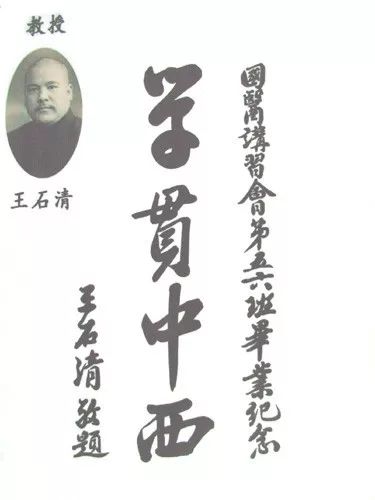 國醫講習會第五六班畢業纪念
学貫中西
王石清敬題
教授
王石清